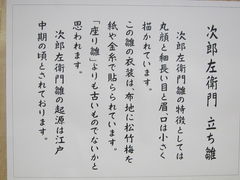 次郎左衛門 立ち雛
次郎左衛門雛の特徴としては
丸顔と細長い目と眉口は小さく
描かれています。
この雛の衣装は、布地に松竹梅を
紙や金糸で貼られています。
「座り雛」よりも古いものでないかと
思われます。
次郎左衛門雛の起源は江戸
中期の頃とされております。